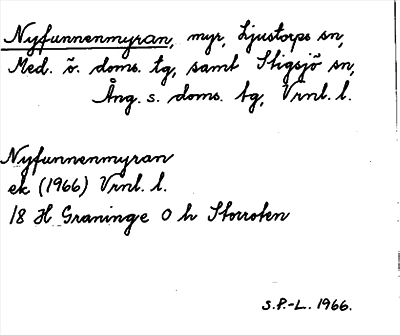 Nyfunnenmyran, myr, Ljustorps sn,
Med. ö. doms. tg, samt Stigsjö sn,
Ång. s. doms. tg, Vrnl. l.
Nyfunnenmyran
ek (1966) Vrnl. l.
18 H Graninge 0 h Storroten
S.P.-L. 1966.